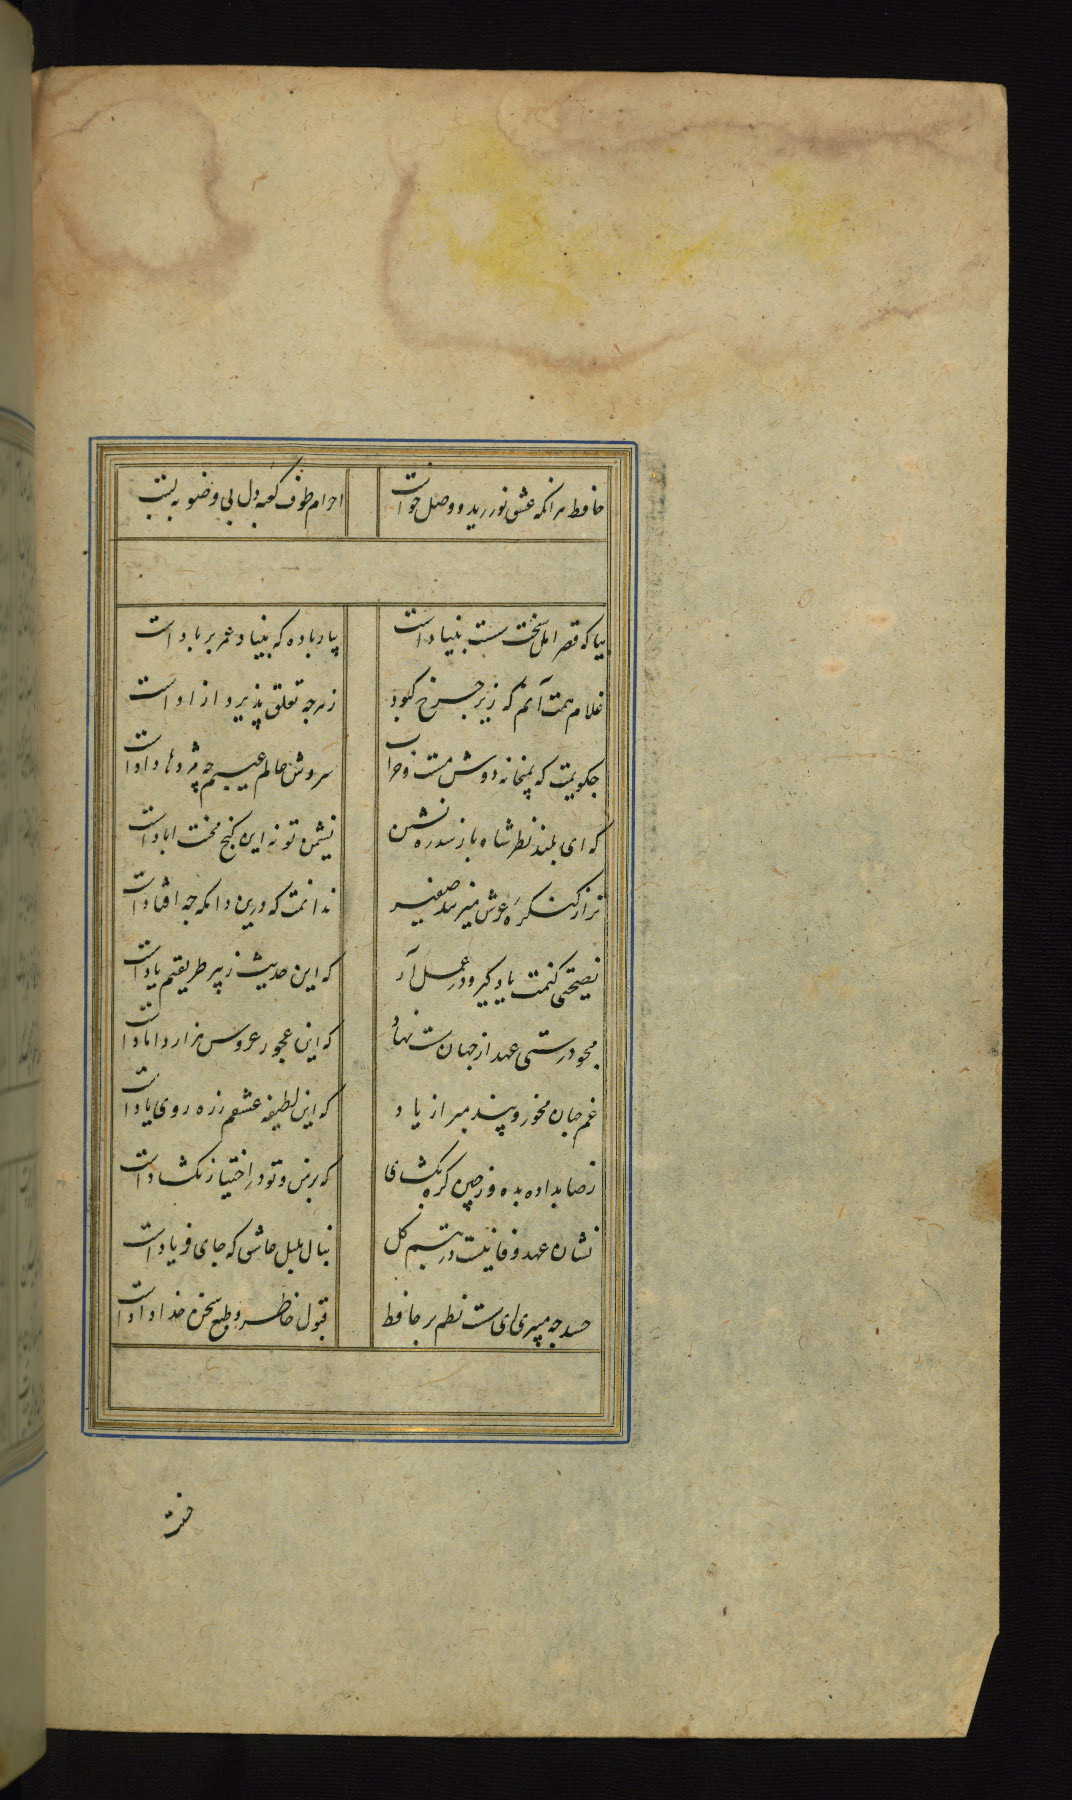 حافظ هر آنکه عشق نورزید و وصل خواست احرام طوف کعبه دل بی وضو ببست
بیا که قصر امل سخت سست بنیاد است بیار باده که بنیاد عمر بر باد است
غلام همت آنم که زیر چرخ کبود ز هر چه تعلق پذیرد آزاد است
چگویمت که بمیخانه دوش مست و خراب سروش عالم غیبم چه مژدها داد است
که ای بلند نظر شاه باز سدره نشین نشیمن تو نه این کنج محنت اباد است
ترا ز کنکره عرش میزنند صفیر ندانمت که درین دامکه چه افتاد است
نصیحتی کنمت یاد کیر و در عمل آر که این حدیث ز پیر طریقتم یاد است
مجو درستی عهد از جهان سست نهاد که این عجوز عروس هزار داماد است
غم جهان مخور و پند مبر از یاد که این لطیفه عشقم ز ره روی یاد است
رضا بداده بده وز جبین کره بکشای که بر من و تو در اختیار نکشاد است
نشان عهد و فا نیست در تبسم کل بنال بلبل عاشق که جای فریاد است
حسد چه میبری ای سست نظم بر حافظ قبول خاطر و طبع سخن خداداد است